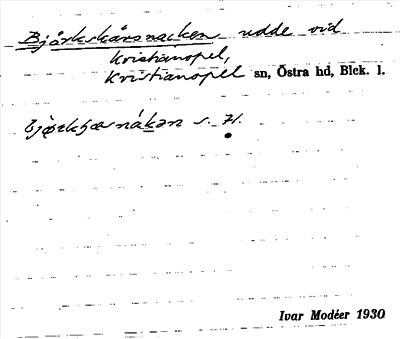 Bjärkskärsnacken udde vid
Kristianopel,
Kristianopel sn, Östra hd, Blek. l.
s. 71.
Ivar Modéer 1930